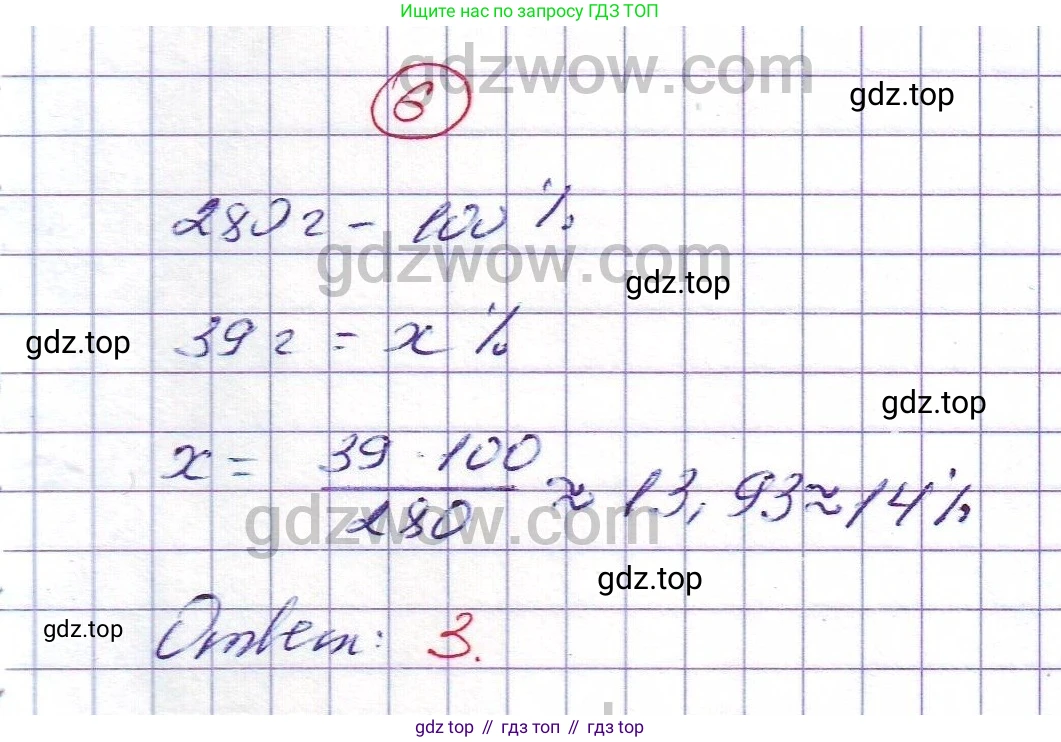 Ищите нас по запросу ГДЗ ТОП
gdzwow.com
6
gdz.top
280 г - 100 %
gdzwow.com
gdz.top
39 г = x %
gdz.top
gdz.top
x = 39 · 100 / 280 ≈ 13,93 ≈ 14 %
gdzwow.com
gdz.top
gdz.top
Ответ: 3.
gdz top // гдз топ // гdz top